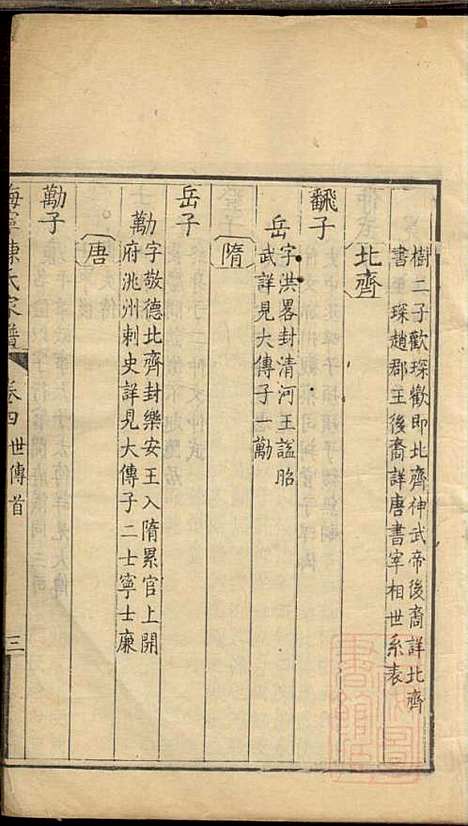 樹二子歡琛歡即北齊神武帝後裔詳北齊
書琛趙郡王後裔詳唐書宰相世系表
北齊
飜子
岳
字洪畧封清河王謚昭
武詳見大傳子一勱
隋
岳子
勱
字敬德北齊封樂安王入隋累官上開
府洮州刺史詳見大傳子二士寧士廉
唐
勱子
海寧陳氏家譜
卷四
世傳首
三